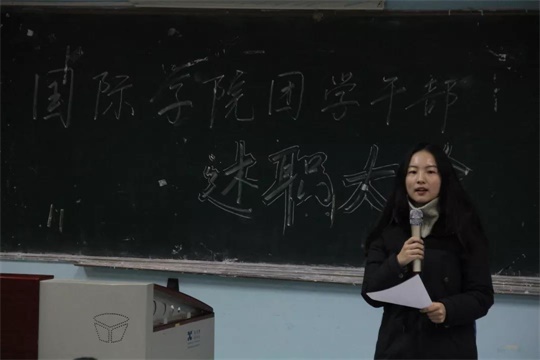 国际学院团学干部
述职大会